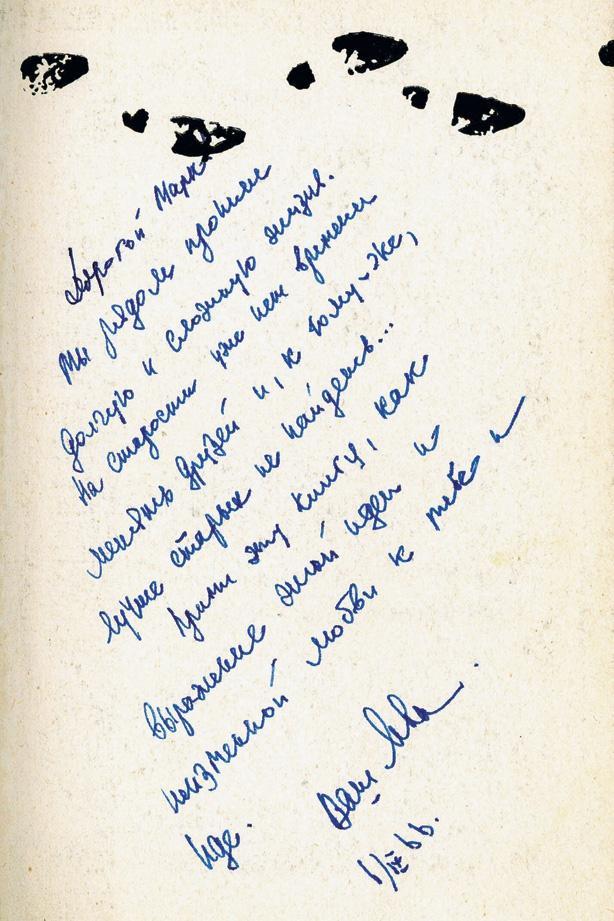 Дорогой Марк
Мы рядом прожили
долгую и сложную жизнь.
На старости уже нет времени
менять друзей и, к тому-же,
лучше старых не найдешь...
Прими эту книгу, как
выражение этой идеи и
неизменной любви к тебе и
Иде.
Ваш
6/IV 66.